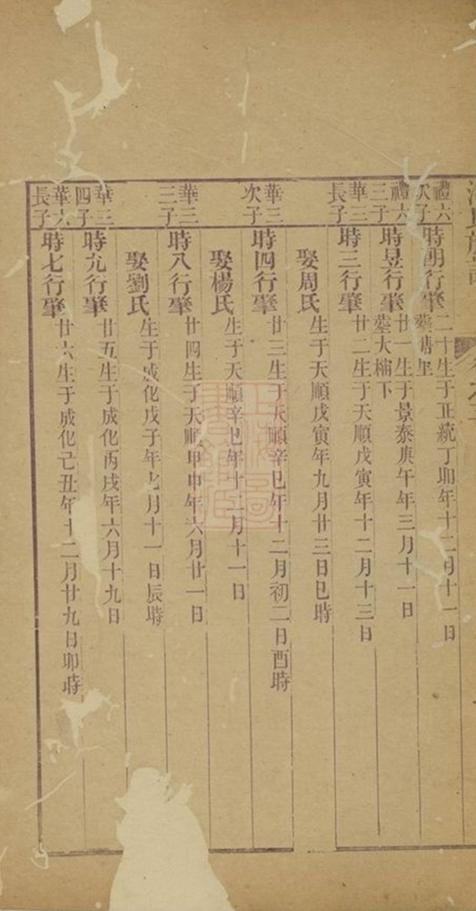 禮六次子
時明行肇二十生于正統丁卯年十二月十一日
葬塘里
禮六三子
時昱行肇廿一生于景泰庚午年三月十一日
葬大楠下
華三長子
時三行肇廿二生于天順戊寅年十二月十三日
娶周氏生于天順戊寅年九月廿三日巳時
華三次子
時四行肇廿三生于天順辛巳年十二月初二日酉時
娶楊氏生于天順辛巳年十月十一日
華三三子
時八行肇廿四生于天順甲申年六月廿一日
娶劉氏生于成化戊子年七月十一日辰時
華三四子
時九行肇廿五生于成化丙戌年六月十九日
華六長子
時七行肇廿六生于成化己丑年十二月廿九日卯時